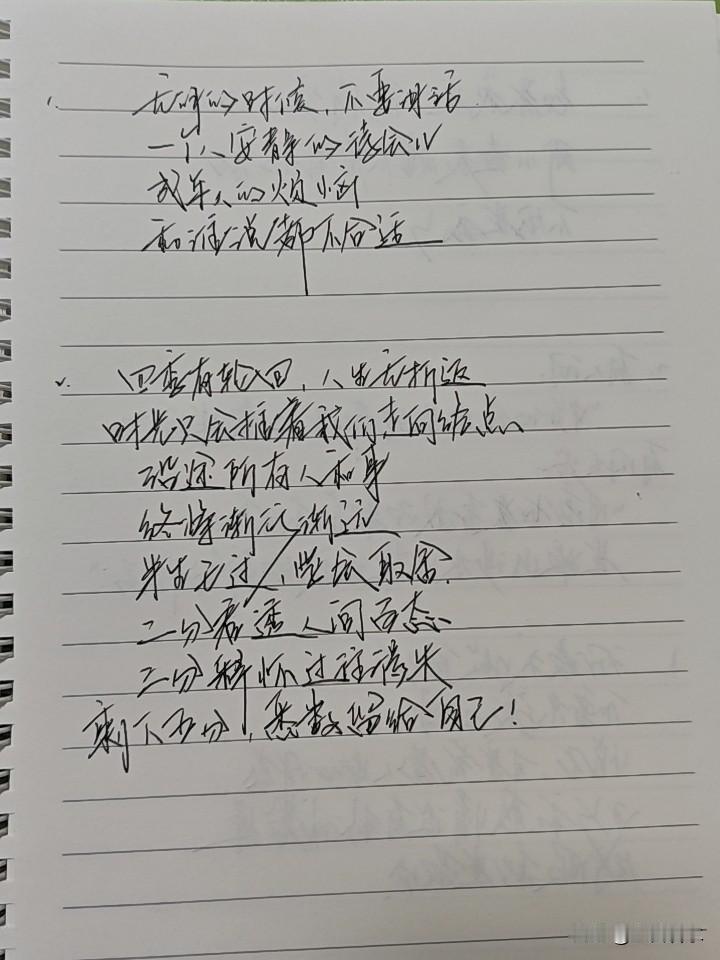 1. 无助的时候,不要讲话
一个人安静的待会儿
成年人的烦恼
和谁说都不合适
2. 四季有轮回,人生无折返
时光只会推着我们走向结点
沿途所有人和事
终将渐行渐远
半生已过,学会取舍.
二分看透人间百态
三分释怀过往得失
剩下五分,悉数留给自己!